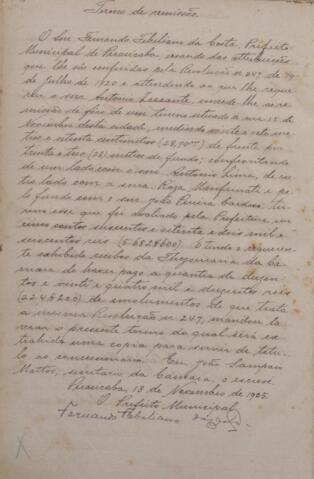 Termo de remissão.
O Snr. Fernando Febeliano da Costa, Prefeito
Municipal de Piracicaba, usando das attribuições
que lhe são conferidas pela Resolução nº 247, de 19
de Julho de 1920 e attendendo ao que lhe reque-
reu o snr. Antonio concede-lhe a re-
missão de fôro de um terreno situado á rua 15 de
Novembro desta cidade, medindo
tros e setenta centimetros de frente por
trinta e oito (38) metros de fundo; confrontando
de um lado com o snr. Antonio Lima, de ou-
tro lado com a snra. Roza e pe-
lo fundo com o snr. João Pereira Cardoso; ter-
reno esse que foi avaliado pela Prefeitura em
cinco contos seiscentos e oitenta e dois mil e
seiscentos reis (5:682$600). E tendo o requeren-
te exhibido recibo da Thezouraria da Ca-
mara de haver pago a quantia de duzen-
tos e vinte e quatro mil e duzentos reis
(224$200) de emolumentos de que trata
a mesma Resolução n. 247, mandou la-
vrar o presente termo do qual será ex-
trahida uma copia para servir de titu-
lo ao concessionario. Eu, João Sampaio
Mattos, secretario da Camara, o escrevi.
Piracicaba, 13 de Novembro de 1925.
O Prefeito Municipal,
Fernando Febeliano da Costa